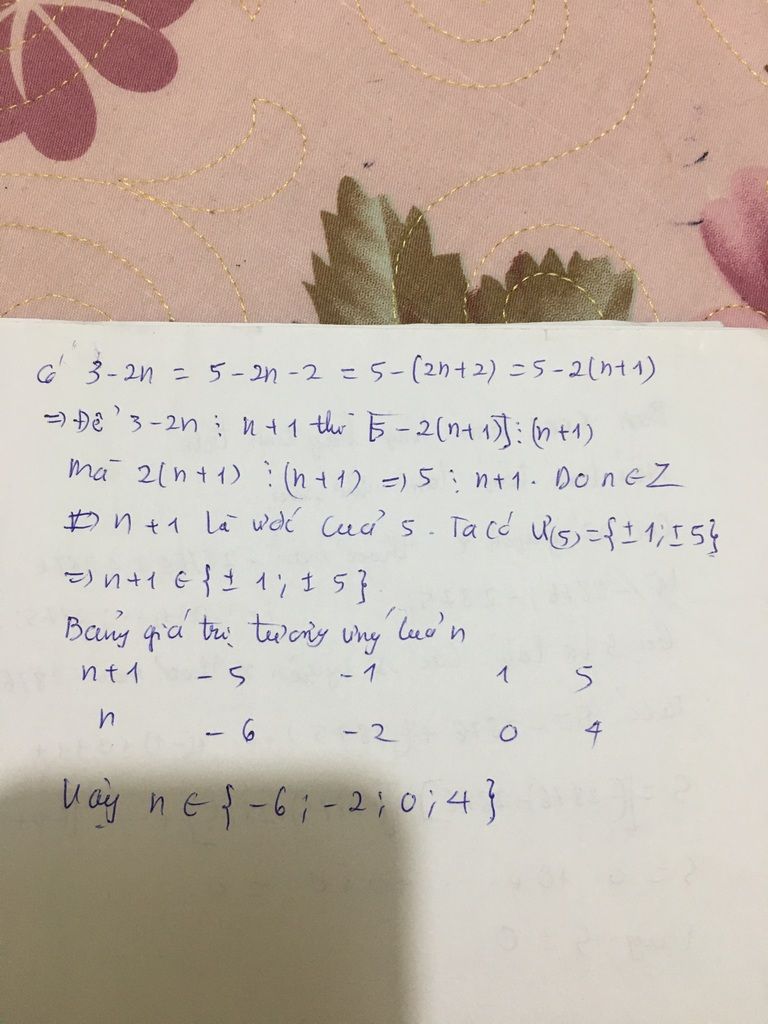 Có 3-2n = 5-2n-2 = 5-(2n+2) = 5-2(n+1)
=> Để 3-2n ⋮ n+1 thì [5-2(n+1)] ⋮ (n+1)
Mà 2(n+1) ⋮ (n+1) => 5 ⋮ n+1. Do n∈Z
=> n+1 là ước của 5. Ta có Ư(5)={±1;±5}
=> n+1 ∈ {±1; ±5}
Bảng giá trị tương ứng của n
n+1 -5 -1 1 5
n -6 -2 0 4
Vậy n ∈ {-6; -2; 0; 4}